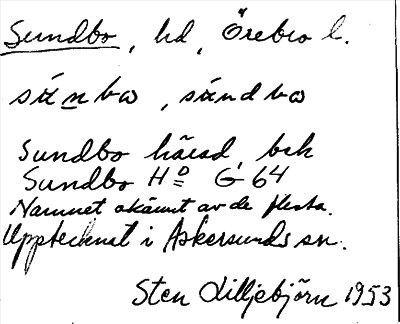 Sundbo, hd, Örebro l.
sunbω, sundbω
Sundbo härad, bek
Sundbo Hd G 64
Namnet okännt av de flesta.
Upptecknat i Askersunds sn.
Sten Lilljebjörn 1953